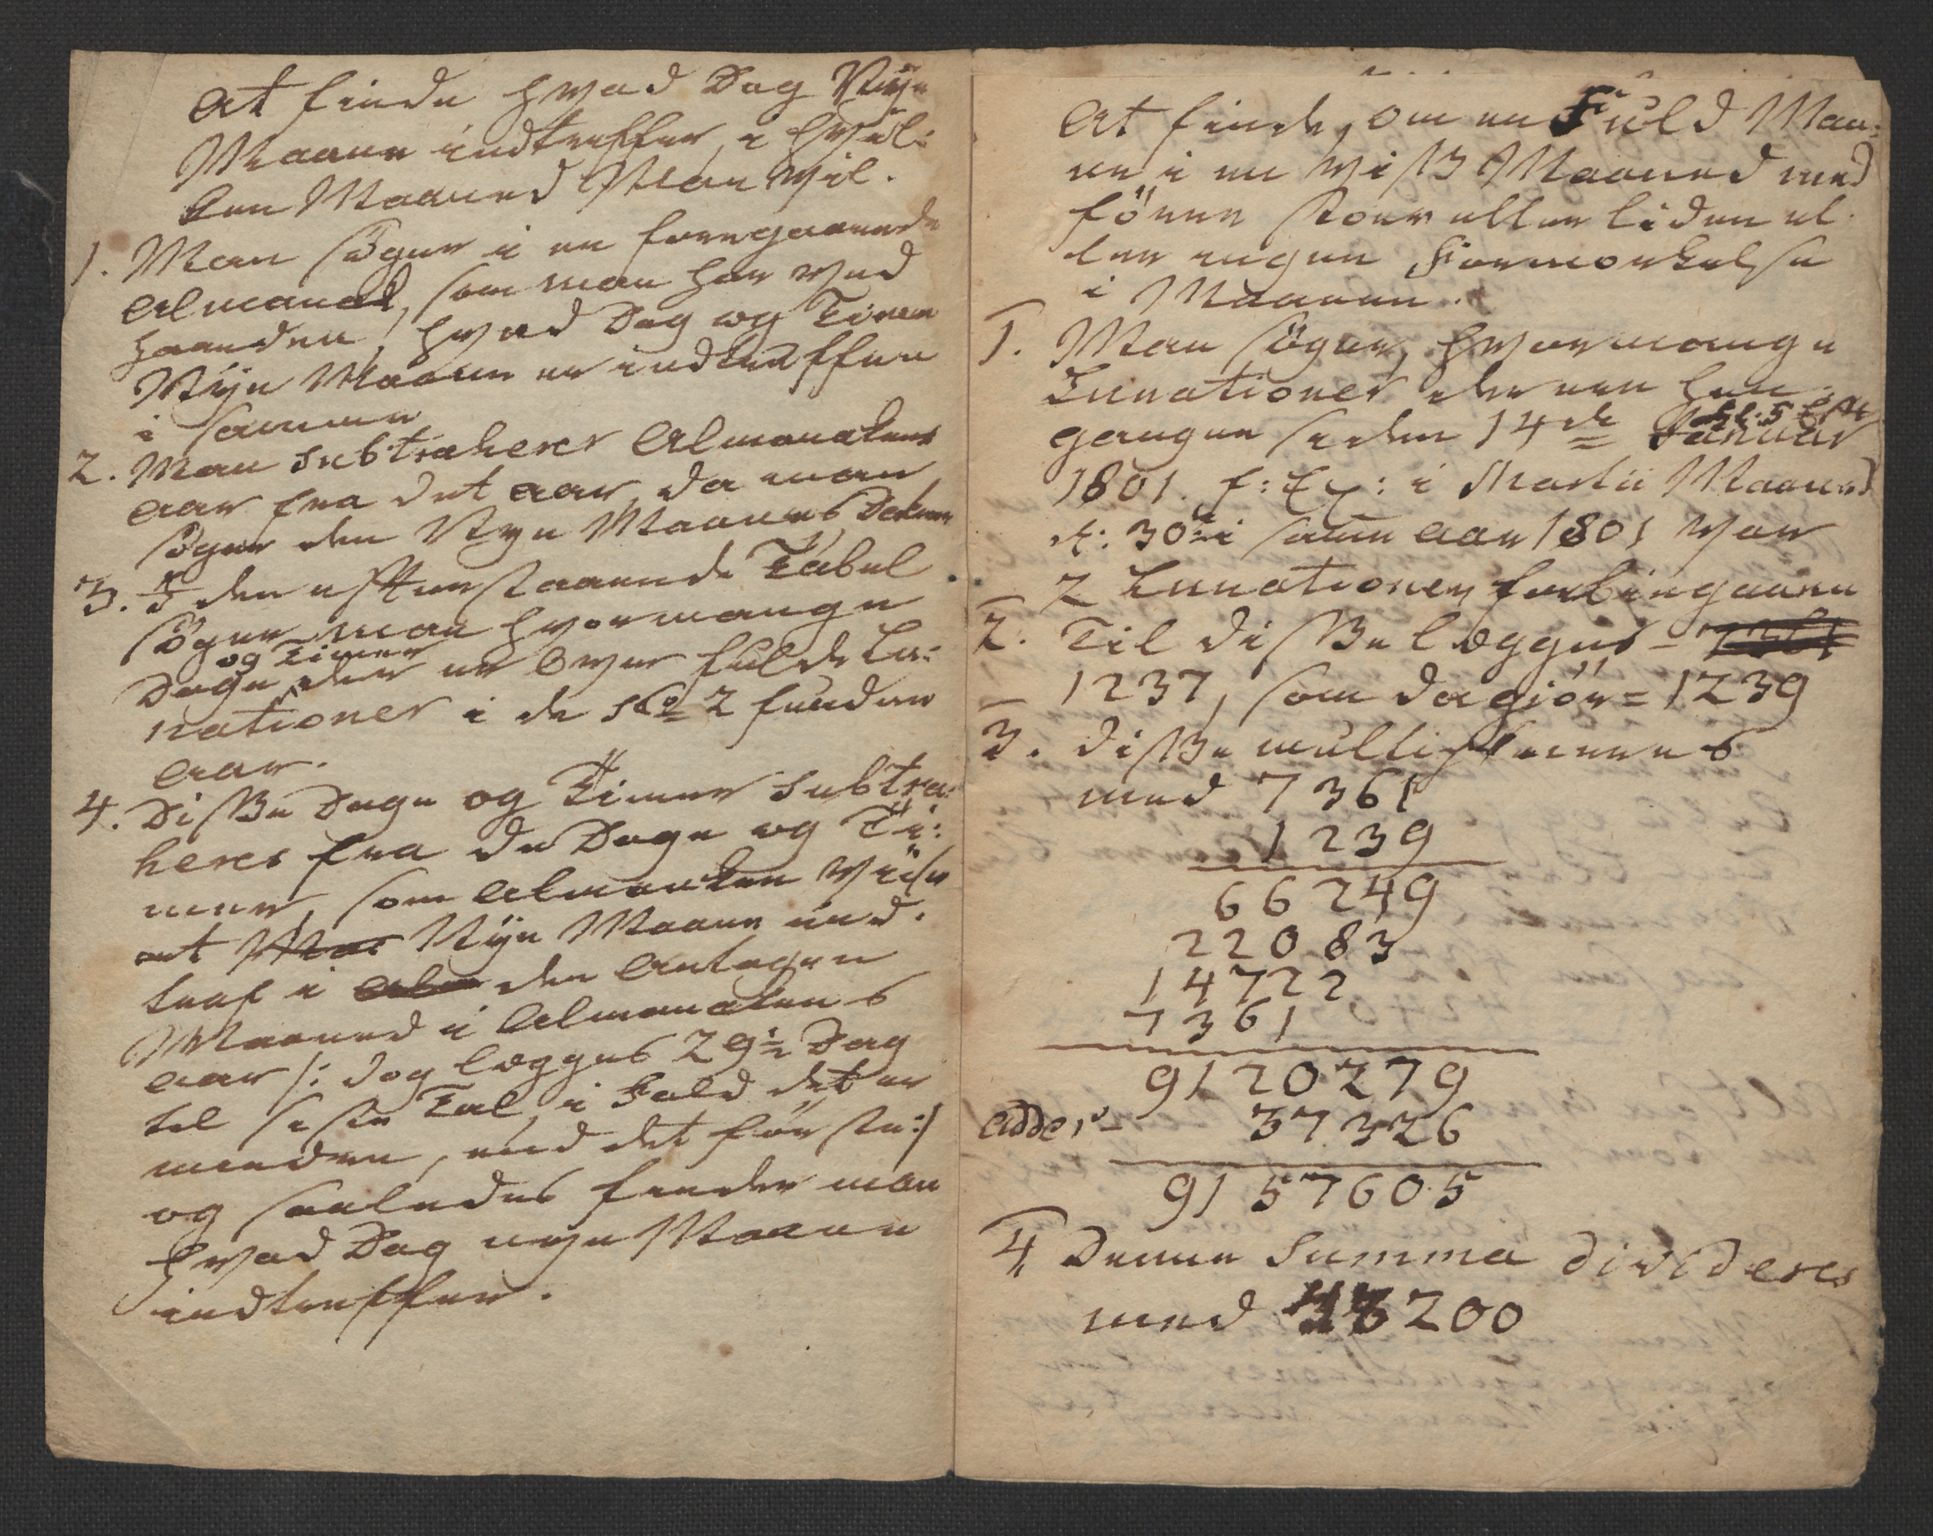 At finde hvad Dag Nÿe
Maane indtreffer i hvil:
ken Maaned Man vil.
1. Man søger i en foregaaende
Almanak, som man har ved
haanden, hvad Dag og Timen
Nÿe Maane er indtreffen
i samme
2. Man subtraherer Almanakens
Aar fra det Aar, da man
søger den Nye Maanes Datum
3. I den efterstaaende Tabel
søger man hvormange
og Timer
Dage der er over fulde Lu:
nationer i de s No 2 funden
Aar.
4. Disse Dage og Timer subtra:
heres fra de Dage og Ti:
mer, som Almanaken viiser
at Maa Nÿe Maane ind:
traf i Alm den Antagen
Maaned i Almanakens
Aar /: dog legges 29½ Dag
til siste Tal, i Fald det er
mindre, end det første :/
og saaledes finder man
hvad Dag nye Maane
indtreffer.
At finde, om en Fuld Maa:
ne i en viss Maaned med
fører stor eller liden el
ler ingen Formørkelse
i Maanen.
1. Man søger, hvormange
Lunationer der er hen
gangen siden 14de Januar
Kl: 5 Eft
1801. f: Ex: i Martii Maaned
d: 30te i samme Aar 1801 var
2 Lunationer forbigaaen
2. Til disse legges - 7361
1237, som da giør = 1239
3. disse multipliceres
med 7361
1239
66249
22083
14722
7361
9120279
adder 37326
9157605
4 Denne Summa divideres
med 43200